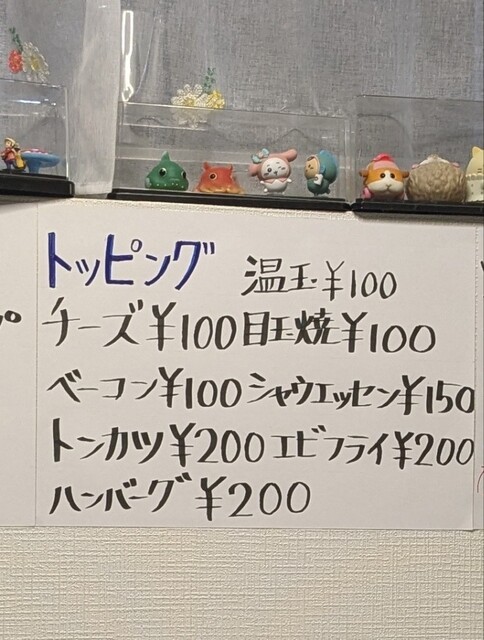 トッピング 温玉¥100
チーズ¥100 目玉焼¥100
ベーコン¥100 シャウエッセン¥150
トンカツ¥200 エビフライ¥200
ハンバーグ¥200